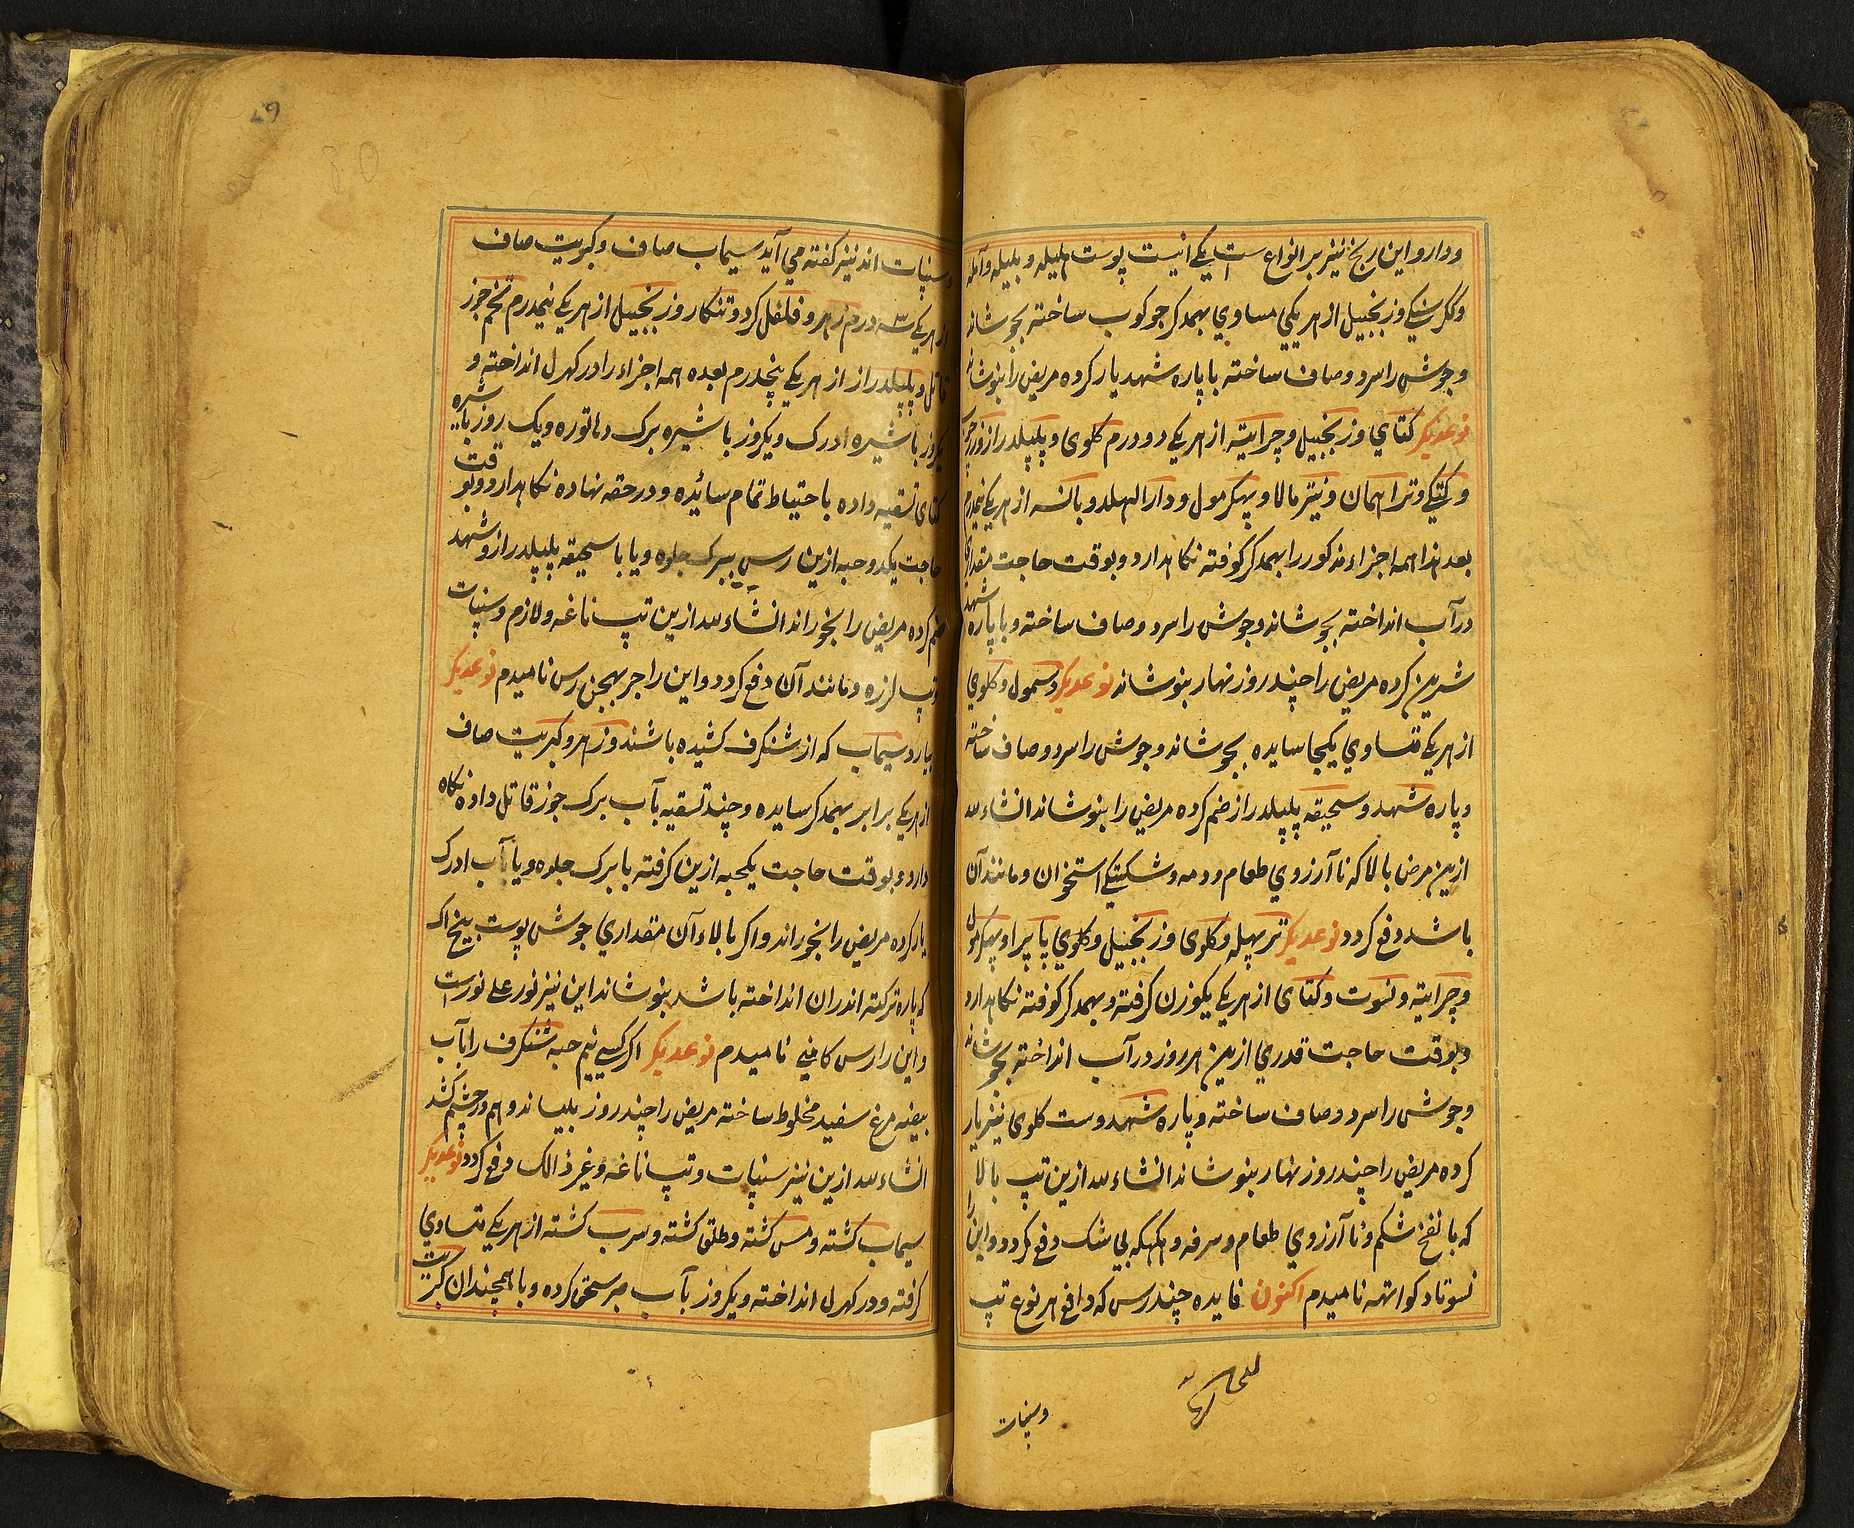 و داروی این رنج نیز بر انواع است یکی اینست پوست هلیله و بلیله و آمله
و ککرسنکی و زنجبیل از هر یکی مساوی بهمدکر جوکوب ساخته بجوشاند
و جوش را سرد و صاف ساخته با پاره شهد یار کرده مریض را بنوشاند
نوعدیکر کتای و زنجبیل و چرایته از هر یکی دو درم کلوی و پیپلدراز و
و کتیکی و تراهمان و نیتر مالا و پهکرمول و دارالهلد و بانسه از هر یکی نیمدرم
بعد هذا همه اجزاء مذکور را بهمدکر کوفته نکاهدارد و بوقت حاجت مقداری
در آب انداخته بجوشاند و جوش را سرد و صاف ساخته و با پاره شهد
شیرین کرده مریض را چند روز نهار بنوشاند نوعدیکر دسمول و کلوی
از هر یکی متساوی یکجا سایده بجوشاند و جوش را سرد و صاف ساخته
و پاره شهد و سحیقه پیپلدراز ضم کرده مریض را بنوشاند انشاءلله
ازین مرض بالا که نا آرزوی طعام و دمه و شکستیکی استخوان و مانند آن
باشد دفع کردد نوعدیکر ترپهله و کلوی و زنجبیل و کلوی پاپرا و پهکرمول
و چرایته و نسوت و کتای از هر یکی یکوزن کرفته و بهمدکر کوفته نکاهدارد
و بوقت حاجت قدری ازین هر روز در آب انداخته بجوشاند
و جوش را سرد و صاف ساخته و پاره شهد و ست کلوی نیز یار
کرده مریض را چند روز نهار بنوشاند انشاءلله ازین تپ بالا
که با نفخ شکم و نا آرزوی طعام و سرفه و کهکهه بی شک دفع کردد و این را
نسوتاد کواتهه نامیدم اکنون فایده چند رس که دافع هر نوع تپ
و سنپات
و سنپات اند نیز کفته می آید سیماب صاف و کبریت صاف
از هر یکی سه درم زهر و فلفل کرد و تنکار و زنجبیل از هر یکی نیمدرم تخم جوز
قاتل و پیپلدراز از هر یکی پنجدرم بعده همه اجزاء را در کهرل انداخته و
یکروز با شیره ادرک و یکروز با شیره برک دهاتوره و یک روز با شیره
کتای تسقیه داده باحتیاط تمام سائیده و در حقه نهاده نکاهدارد و بوقت
حاجت یکدو حبه ازین رس ببرک جلوه و یا با سحیقه پیپلدراز و شهد
ضم کرده مریض را بخوراند انشاءلله ازین تپ ناغه و لازم و سنپات
و تپ لرزه و مانند آن دفع کردد و این را جربهنجن رس نامیدم نوعدیکر
بیارد سیماب که از شنکرف کشیده باشند و زهر و کبریت صاف
از هر یکی برابر بهمدکر سایده و چند تسقیه بآب برک جوز قاتل داده نکاه
دارد و بوقت حاجت یکحبه ازین کرفته با برک جلوه و یا بآب ادرک
یار کرده مریض را بخوراند و اکر بالاء آن مقداری جوش پوست بیخ اک
که پاره ترکته اندران انداخته باشد بنوشاند این نیز نور علی نور است
و این را رس کامنی نامیدم نوعدیکر اکر کسی نیم حبه شنکرف را بآب
بیضه مرغ سفید مخلوط ساخته مریض را چند روز بلیساند و هم در چشم کشد
انشاءلله ازین نیز سنپات و تپ ناغه و غیر ذالک دفع کردد نوعدیکر
سیماب کشته و مس کشته و طلق کشته و سرب کشته از هر یکی متساوی
کرفته و در کهرل انداخته و یکروز بآب صبر سحق کرده و با همچندان کبریت